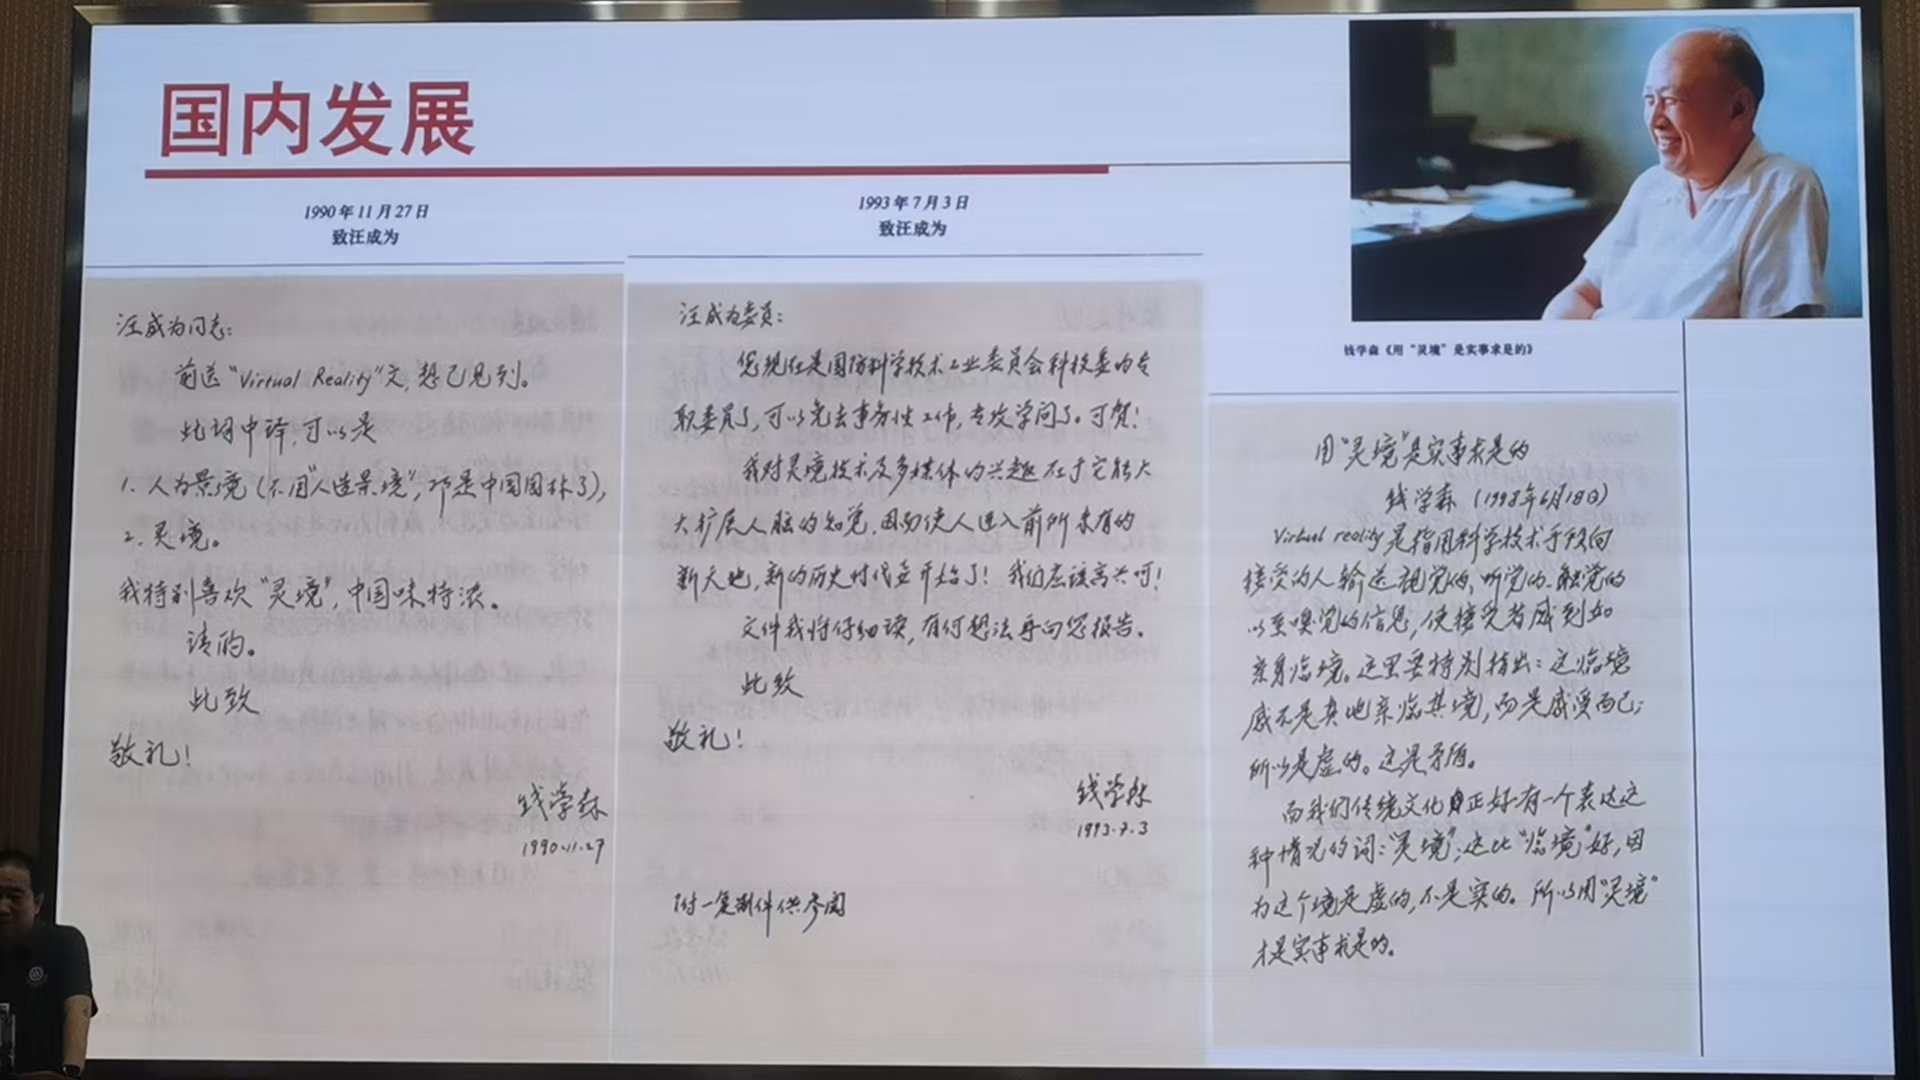 国内发展
1990年11月27日
致汪成为
汪成为同志:
前送“Virtual Reality”文,想已见到。
此词中译,可以是
1. 人为景境(不用“人造景境”,那是中国园林了),
2. 灵境。
我特别喜欢“灵境”,中国味特浓。
请酌。
此致
敬礼!
钱学森
1990.11.27
1993年7月3日
致汪成为
汪成为委员:
您现在是国防科学技术工业委员会科技委的专
职委员了,可以免去事务性工作,专攻学问了。可贺!
我对灵境技术及多媒体的兴趣在于它能大
大扩展人脑的知觉,因而使人进入前所未有的
新天地,新的历史时代要开始了!我们应该高兴呵!
文件我将仔细读,有何想法再向您报告。
此致
敬礼!
钱学森
1993.7.3
附一复制件供参阅
钱学森《用“灵境”是实事求是的》
用“灵境”是实事求是的
钱学森(1998年6月18日)
Virtual reality是指用科学技术手段向
接受的人输送视觉的、听觉的、触觉的
以至嗅觉的信息,使接受者感到如
亲身临境。这里要特别指出:这临境
感不是真地亲临其境,而是感受而已;
所以是虚的。这是矛盾。
而我们传统文化正好有一个表达这
种情况的词:“灵境”;这比“临境”好,因
为这个境是虚的,不是实的。所以用“灵境”
才是实事求是的。